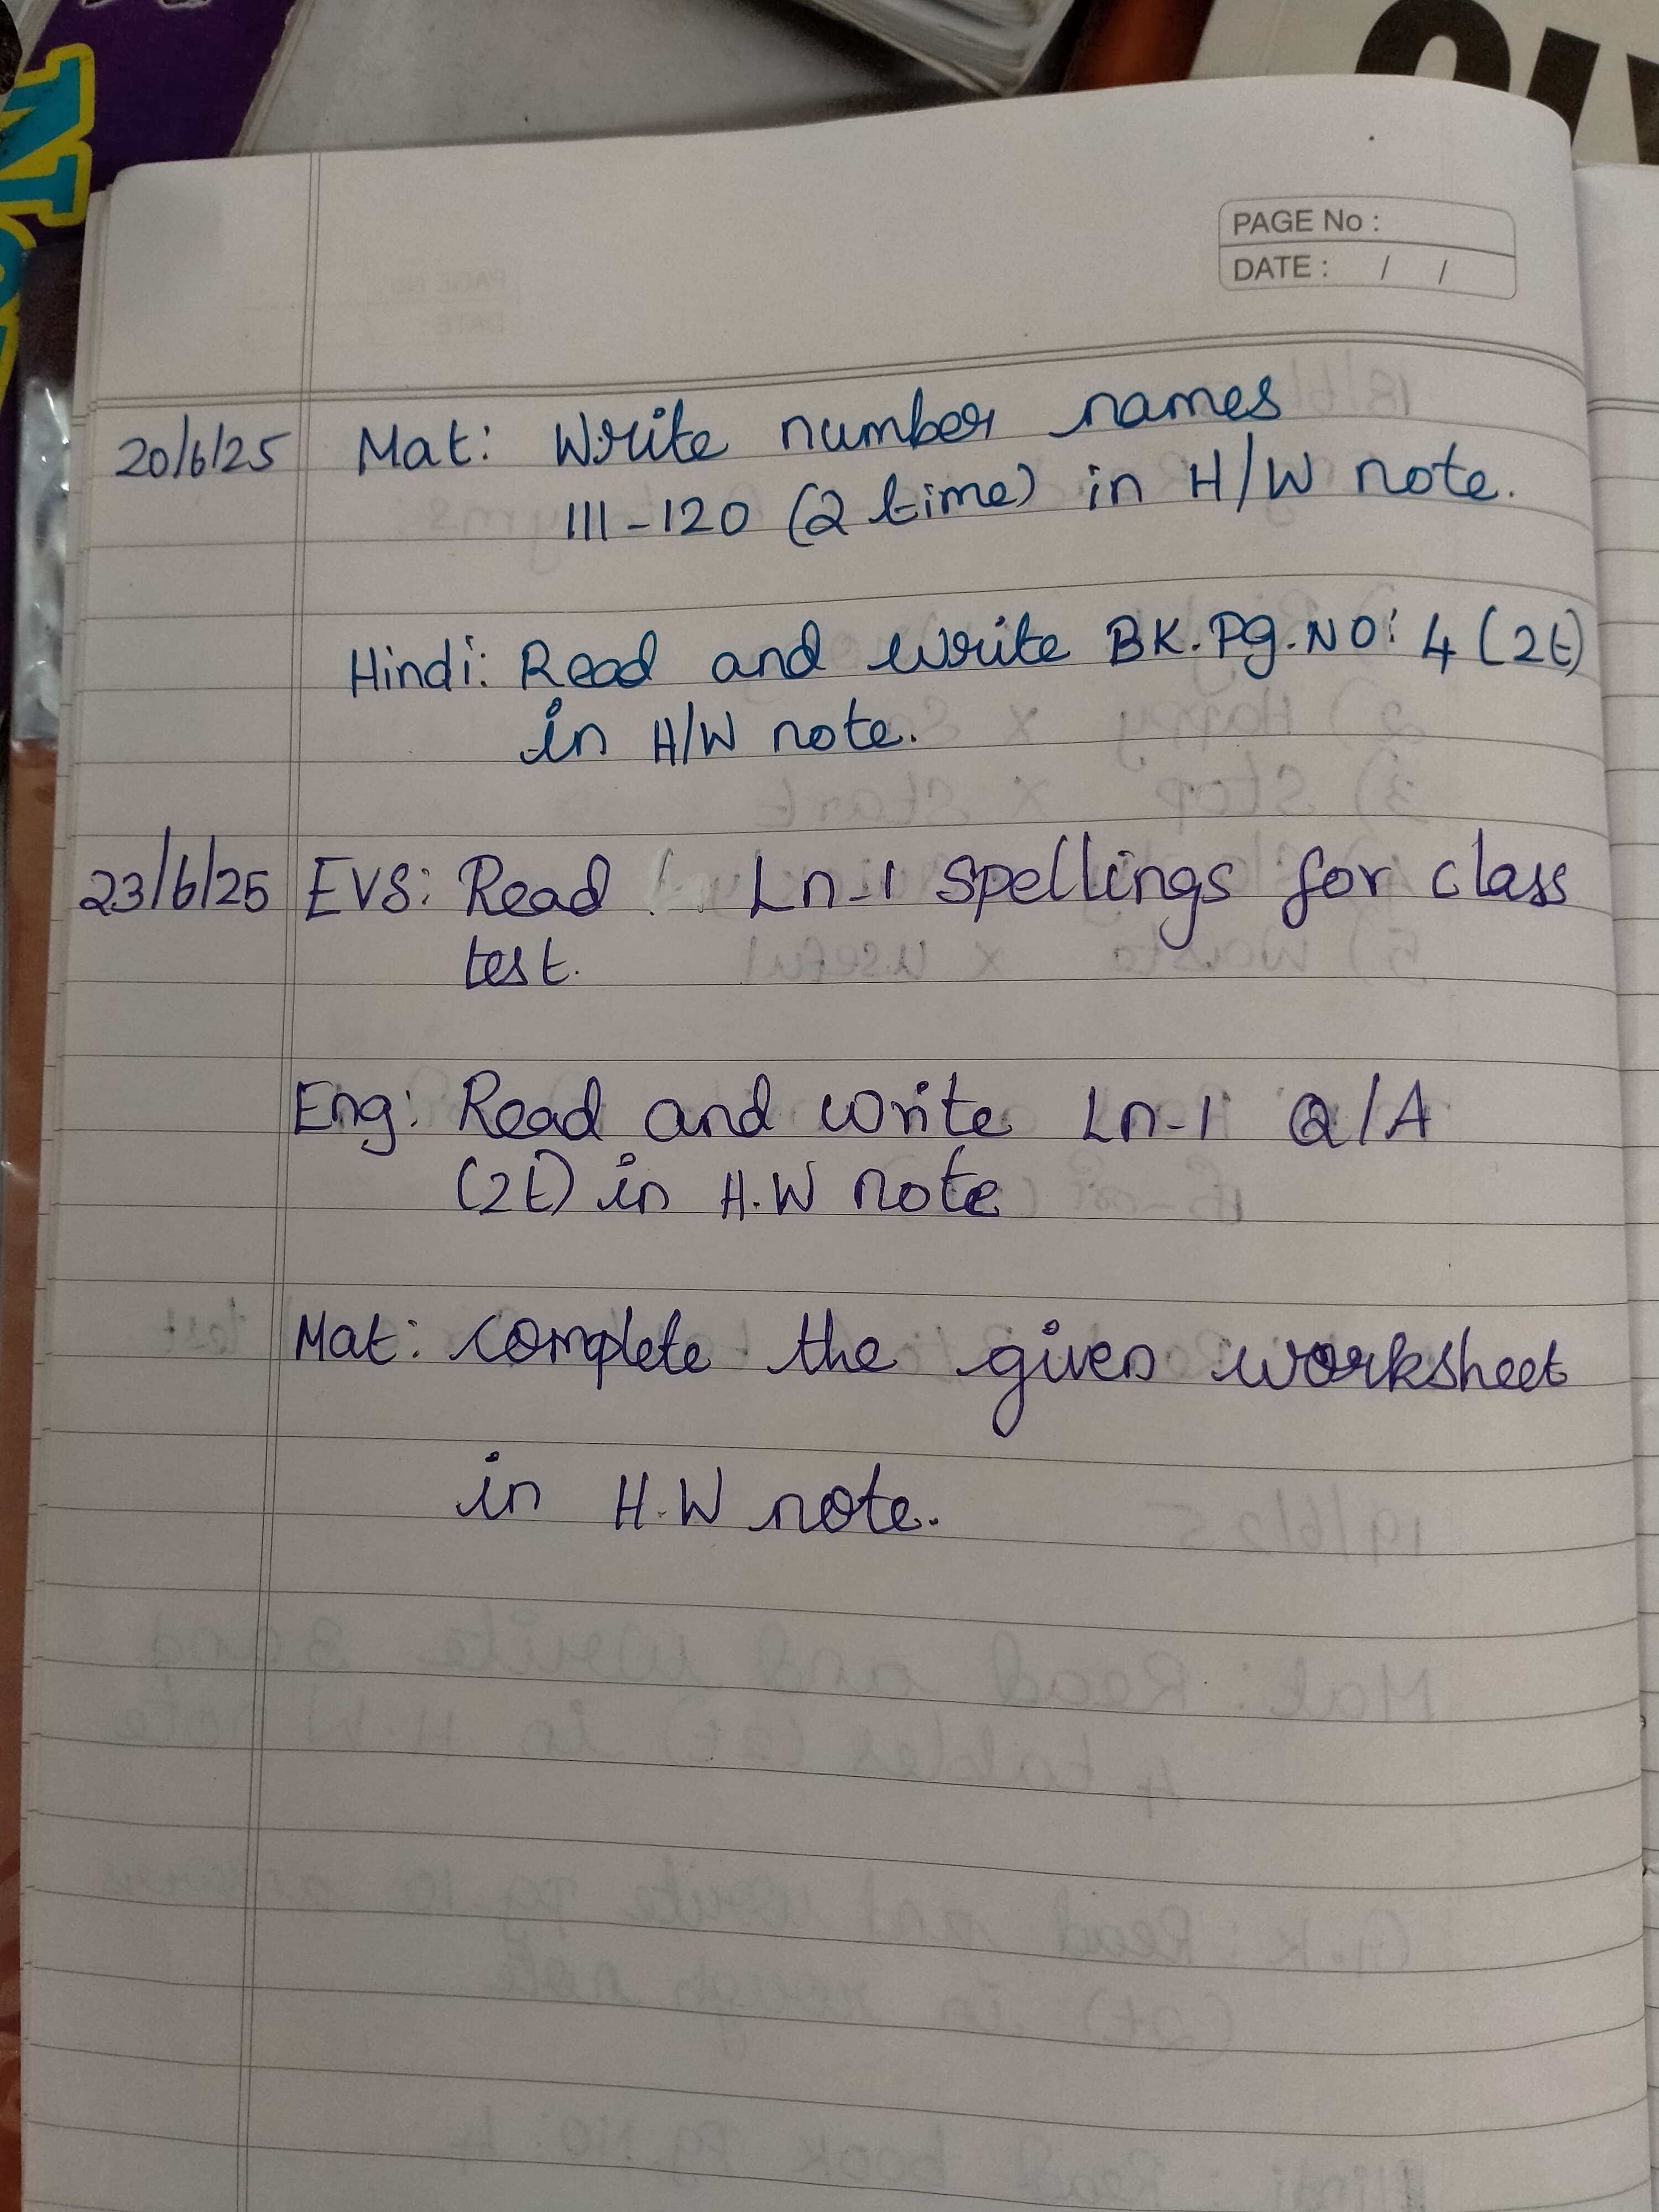 PAGE No :
DATE : / /
20/6/25 Mat: Write number names
111-120 (2 time) in H/W note.
Hindi: Read and write BK.Pg.NO: 4 (2t)
in H/W note.
23/6/25 EVS: Read Ln-1 spellings for class
test.
Eng: Read and write Ln-1 Q/A
(2t) in H.W note
Mat: complete the given worksheet
in H.W note.